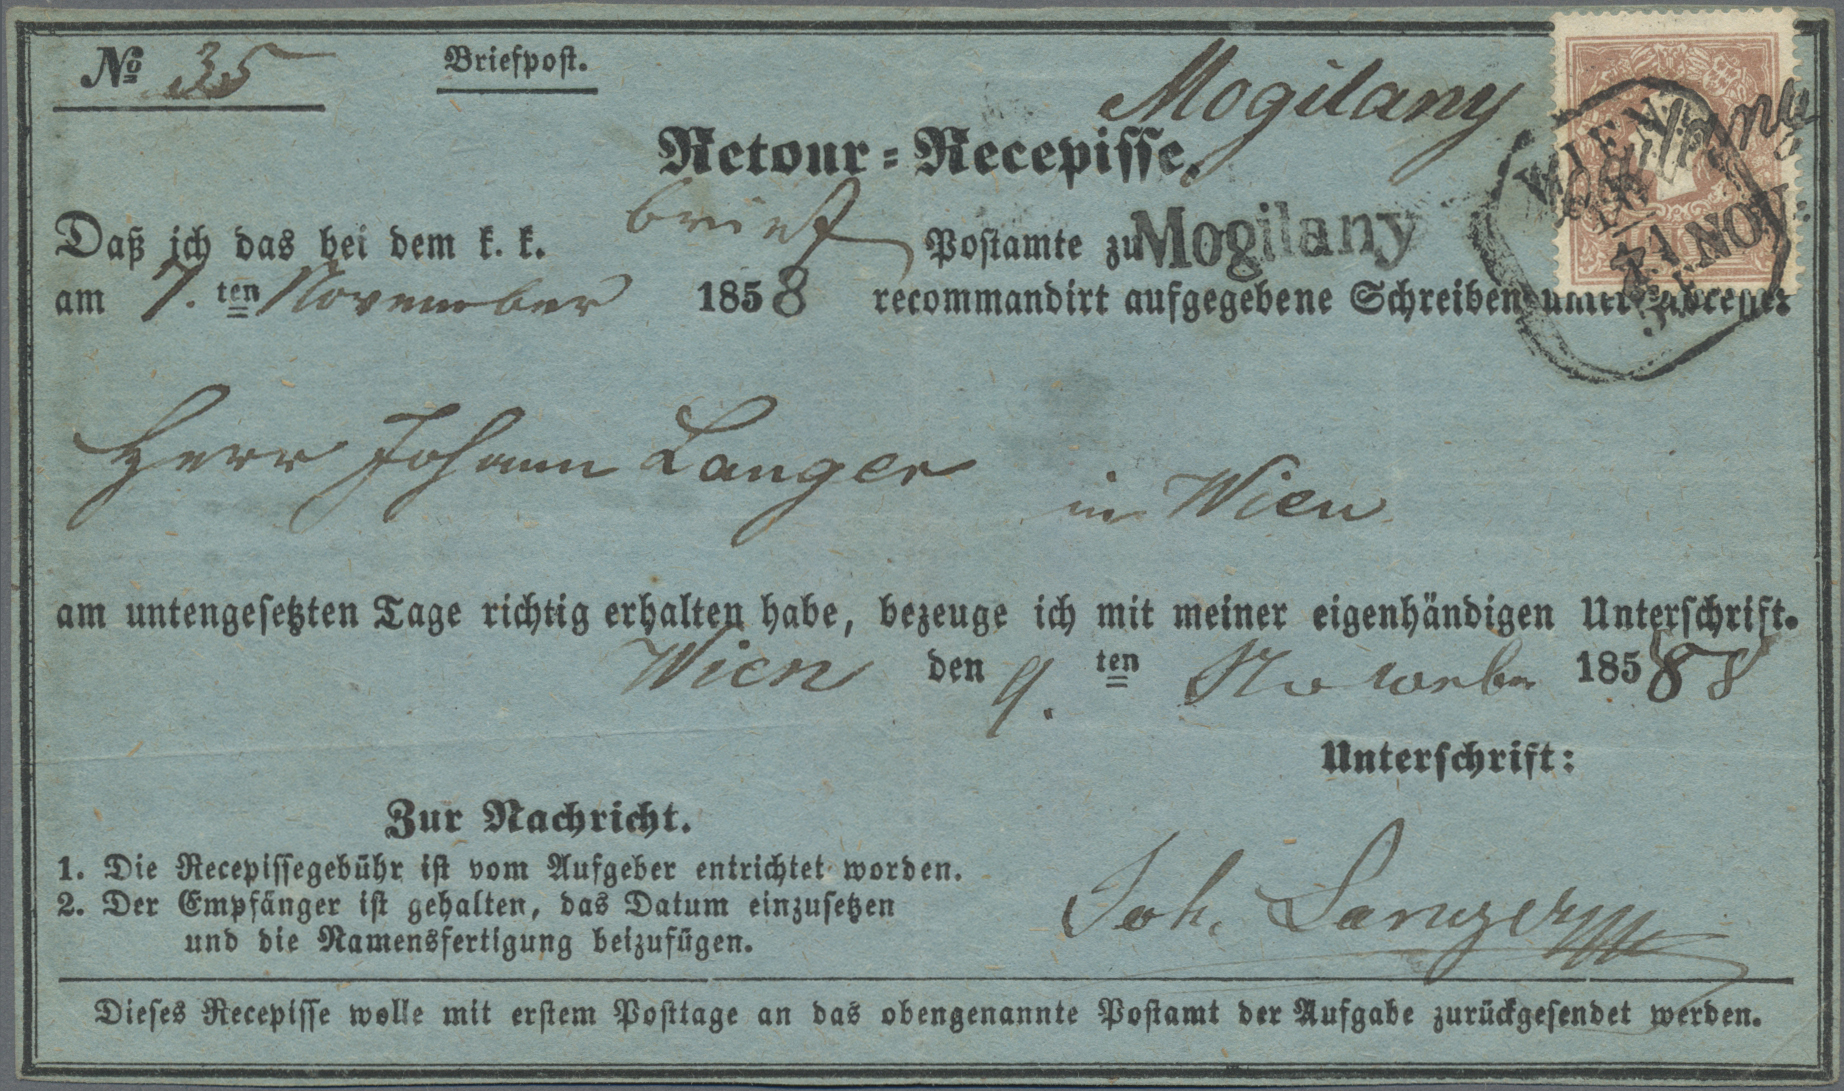 No 35 Briefpost.
Mogilany
Retour=Recepisse.
Daß ich das bei dem k. k. brief Postamte zu Mogilany
am 7. ten November 1858 recommandirt aufgegebene Schreiben unter Adresse:
WIEN
NOV.
Herr Johann Langer
in Wien
am untengesetzten Tage richtig erhalten habe, bezeuge ich mit meiner eigenhändigen Unterschrift.
Wien den 9. ten November 1858 8
Unterschrift:
Zur Nachricht.
1. Die Recepissegebühr ist vom Aufgeber entrichtet worden.
2. Der Empfänger ist gehalten, das Datum einzusetzen
und die Namensfertigung beizufügen.
Joh. Langer
Dieses Recepisse wolle mit erstem Posttage an das obengenannte Postamt der Aufgabe zurückgesendet werden.